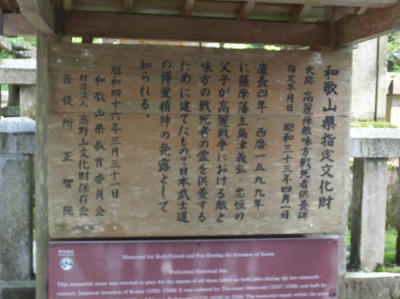 和歌山県指定文化財
史跡 高麗陣敵味方戦死者供養碑
指定年月日 昭和三十三年四月一日
慶長四年(西暦一五九九年)
に薩摩藩主島津義弘、忠恒の
父子が高麗戦争における敵と
味方の戦死者の霊を供養する
ために建てたもので日本武士道
の博愛精神の発露として
知られる。
昭和四十六年三月三十一日
和歌山県教育委員会
財団法人 高野山文化財保存会
菩提所 正智院
Memorial for Both Friend and Foe During the Invasion of Korea
Prefectural Historical Site
This memorial stone was erected to pray for the repose of all those killed on both sides during the late-sixteenth-
century Japanese Invasion of Korea